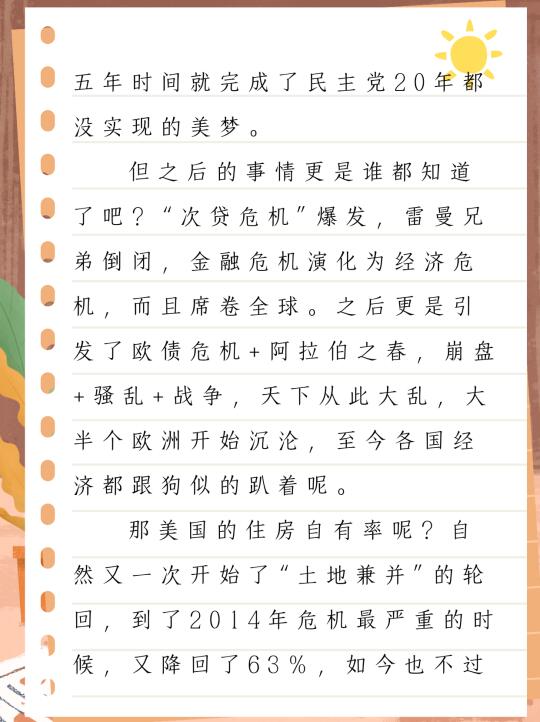 五年时间就完成了民主党20年都
没实现的美梦。
但之后的事情更是谁都知道
了吧？“次贷危机”爆发，雷曼兄
弟倒闭，金融危机演化为经济危
机，而且席卷全球。之后更是引
发了欧债危机+阿拉伯之春，崩盘
+骚乱+战争，天下从此大乱，大
半个欧洲开始沉沦，至今各国经
济都跟狗似的趴着呢。
那美国的住房自有率呢？自
然又一次开始了“土地兼并”的轮
回，到了2014年危机最严重的时
候，又降回了63%，如今也不过